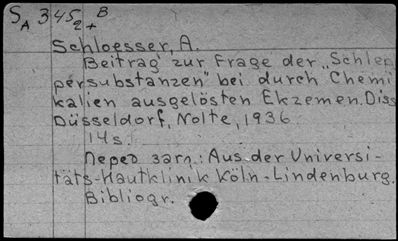 SA 345 2+B
Schloesser, A.
Beitrag zur Frage der „Schlep
persubstanzen" bei durch Chemi
kalien ausgelösten Ekzemen. Diss
Düsseldorf, Nolte, 1936.
14s.
Перед загл.: Aus der Universi-
täts-Hautklinik Köln-Lindenburg.
Bibliogr.